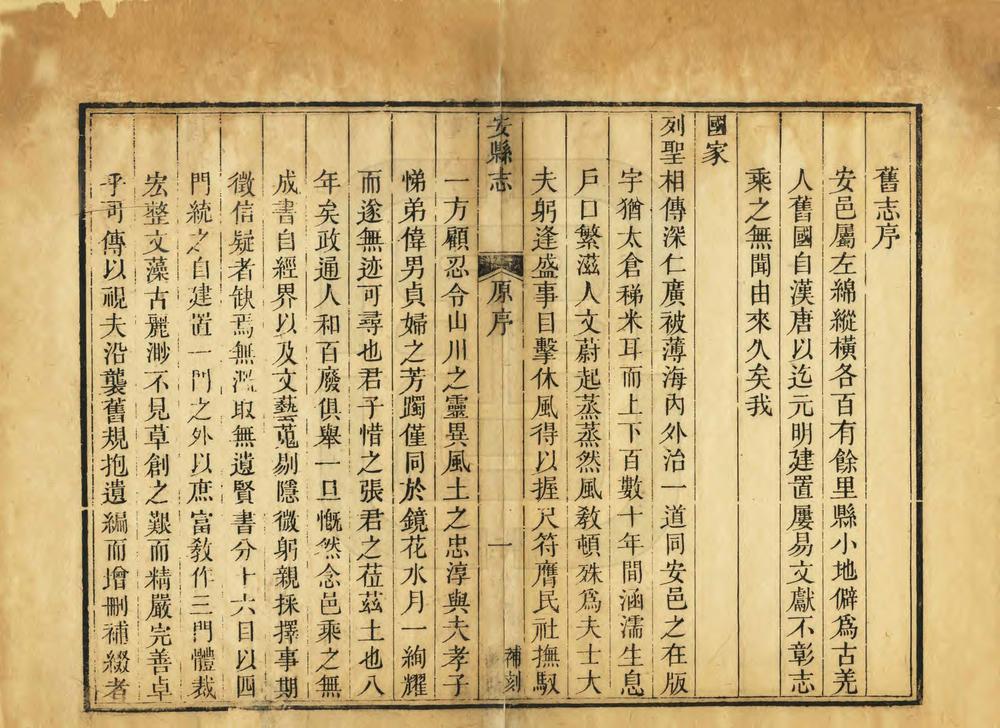 舊志序
安邑屬左綿縱橫各百有餘里縣小地僻爲古羌
人舊國自漢唐以迄元明建置屢易文獻不彰志
乘之無聞由來久矣我
國家
列聖相傳深仁廣被薄海內外治一道同安邑之在版
宇猶太倉稊米耳而上下百數十年間涵濡生息
戶口繁滋人文蔚起蒸蒸然風敎頓殊爲夫士大
夫躬逢盛事目擊休風得以握尺符膺民社撫馭
安縣志 原序 一 補刻
一方顧忍令山川之靈異風土之忠淳與夫孝子
悌弟偉男貞婦之芳躅僅同於鏡花水月一絢耀
而遂無迹可尋也君子惜之張君之莅茲土也八
年矣政通人和百廢俱舉一旦慨然念邑乘之無
成書自經界以及文藝蒐剔隱微躬親採擇事期
徵信疑者缺焉無濫取無遺賢書分十六目以四
門統之自建置一門之外以庶富敎作三門體裁
宏整文藻古麗渺不見草創之艱而精嚴完善卓
乎可傳以視夫沿襲舊規抱遺編而增刪補綴者